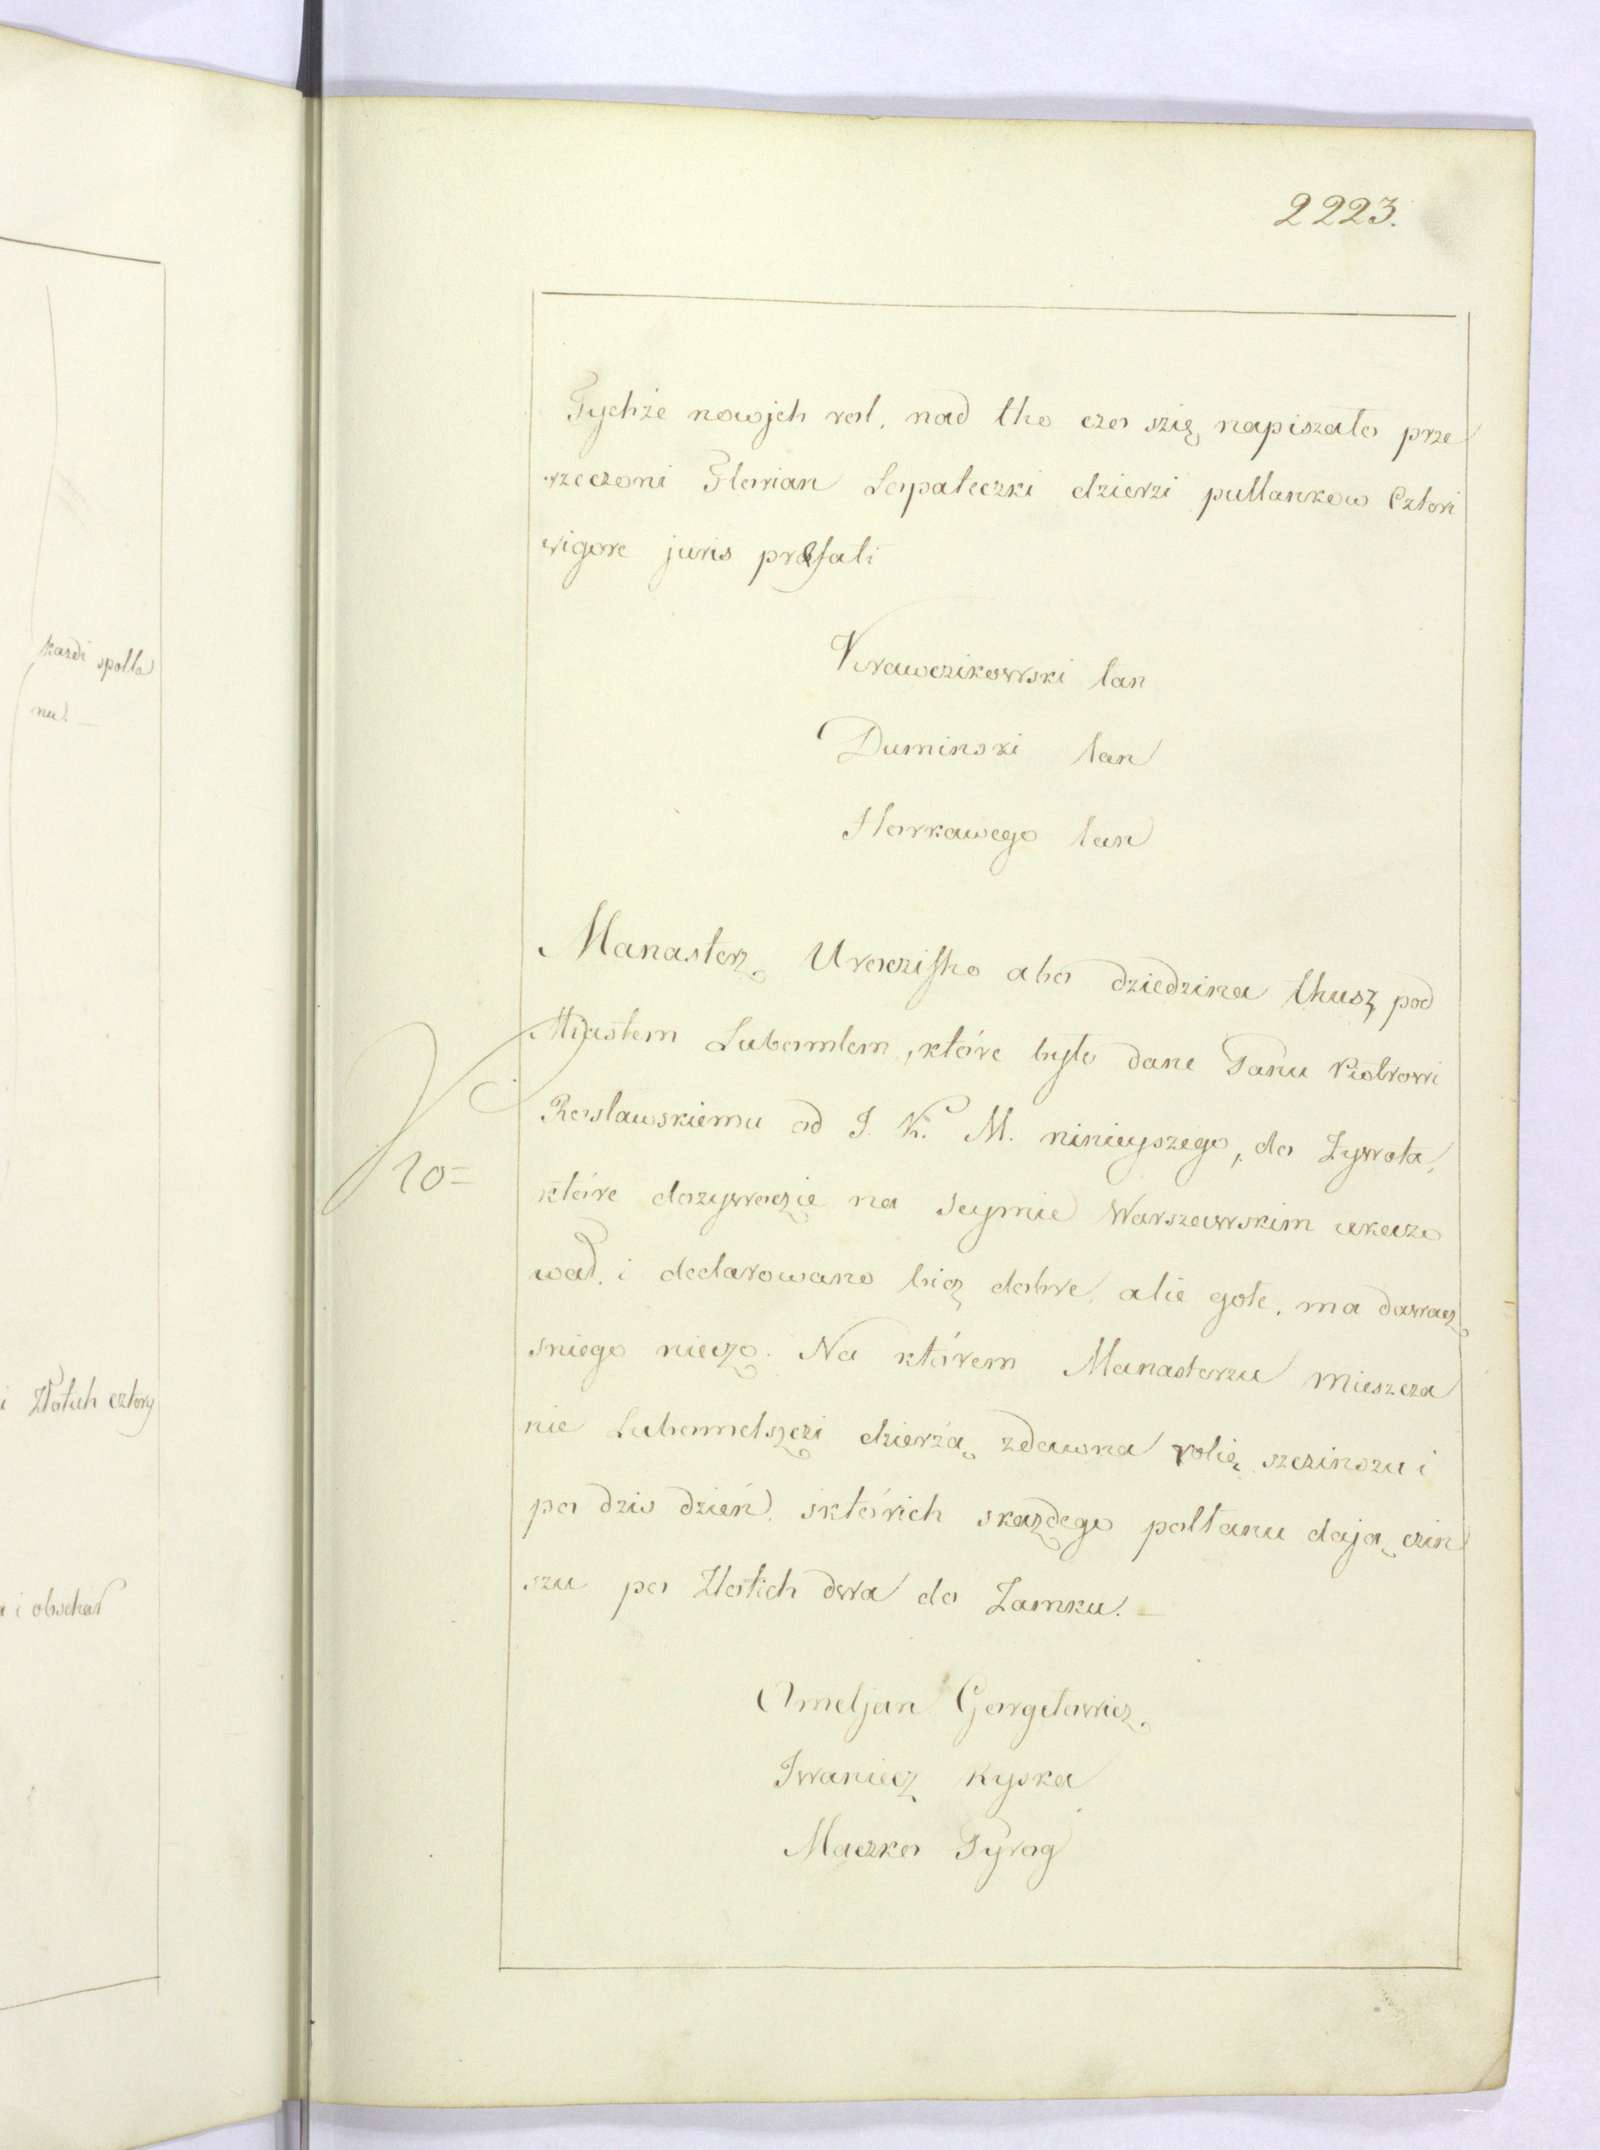 2223.
Tychże nowjch rol, nad tho czo szię napiszało prze
rzeczoni Florian Lopateczki dzierzi pullankow Cztori
vigore juris præfati
Krawczikowski łan
Duminski łan
Horkawego łan
Manasterz Uroczisko abo dziedzina thusz pod
Miastem Lubomlem, które było dane Panu Piotrowi
Rosławskiemu od J. K. M. ninieyszego, do Żywota,
które dożywoczie na Seymie Warszawskim ukazo
wał, i declarowano bicz dobre, alie gołe, ma dawacz
sniego niecżo. Na którem Manasterzu mieszcza
nie Lubomelsczi dzierżą zdawna rolię szczinszu i
po dzis dzień, sktórich skażdego połłanu dają czin
szu po Złotich dwa do Zamku. —
Omeljan Gorgełowicz
Iwaniecz Kyska
Maczko Pyrog
10=
każdi społła
nu. —
i Złotich cztory
a i obsehał